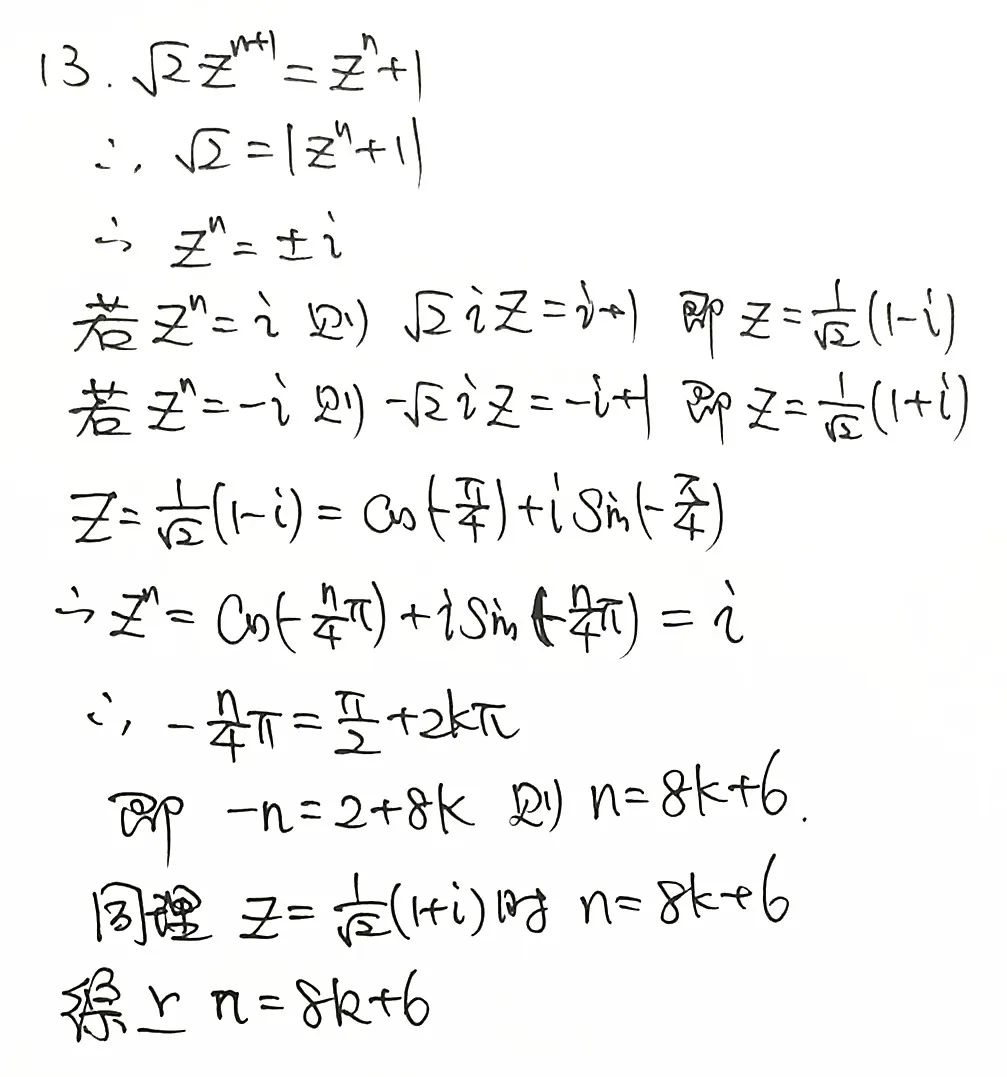 13. √2 z^{n+1} = z^n + 1
∴ √2 = |z^n + 1|
∴ z^n = ± i
若 z^n = i 则 √2 i z = i + 1 即 z = \frac{1}{√2}(1-i)
若 z^n = -i 则 -√2 i z = -i + 1 即 z = \frac{1}{√2}(1+i)
z = \frac{1}{√2}(1-i) = Cos(-\frac{π}{4}) + i Sin(-\frac{π}{4})
∴ z^n = Cos(-\frac{n}{4}π) + i Sin(-\frac{n}{4}π) = i
∴ -\frac{n}{4}π = \frac{π}{2} + 2kπ
即 -n = 2 + 8k 则 n = 8k + 6.
同理 z = \frac{1}{√2}(1+i) 时 n = 8k + 6
综上 n = 8k + 6